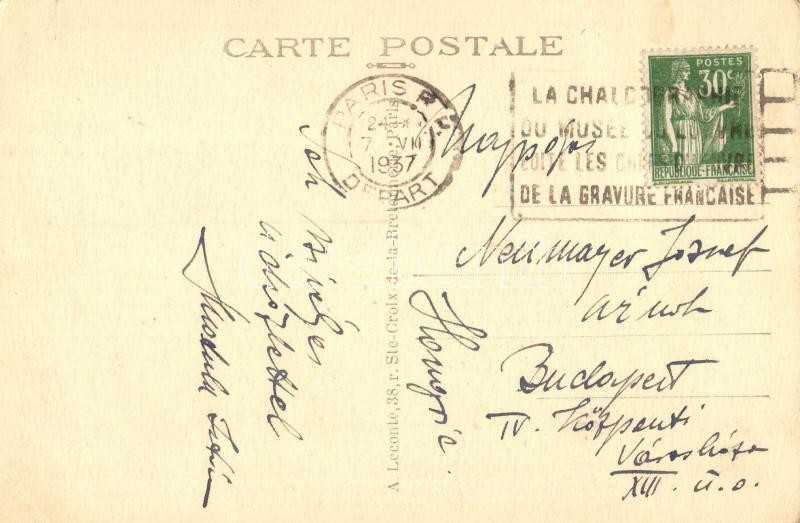 CARTE POSTALE
POSTES
30c
REPUBLIQUE-FRANÇAISE
PARIS
24
7 VII
1937
DEPART
LA CHALCOGRAPHIE
DU MUSÉE DU LOUVRE
EDITE LES CHEFS D'ŒUVRE
DE LA GRAVURE FRANCAISE
A. Leconte, 38, r. Ste-Croix-de-la-Bretonnerie, Paris
Sok szíves
üdvözlettel
Neumayer József
úrnak
Budapest
IV. Központi
Városháza
XIII. ü.o.
Hongrie.